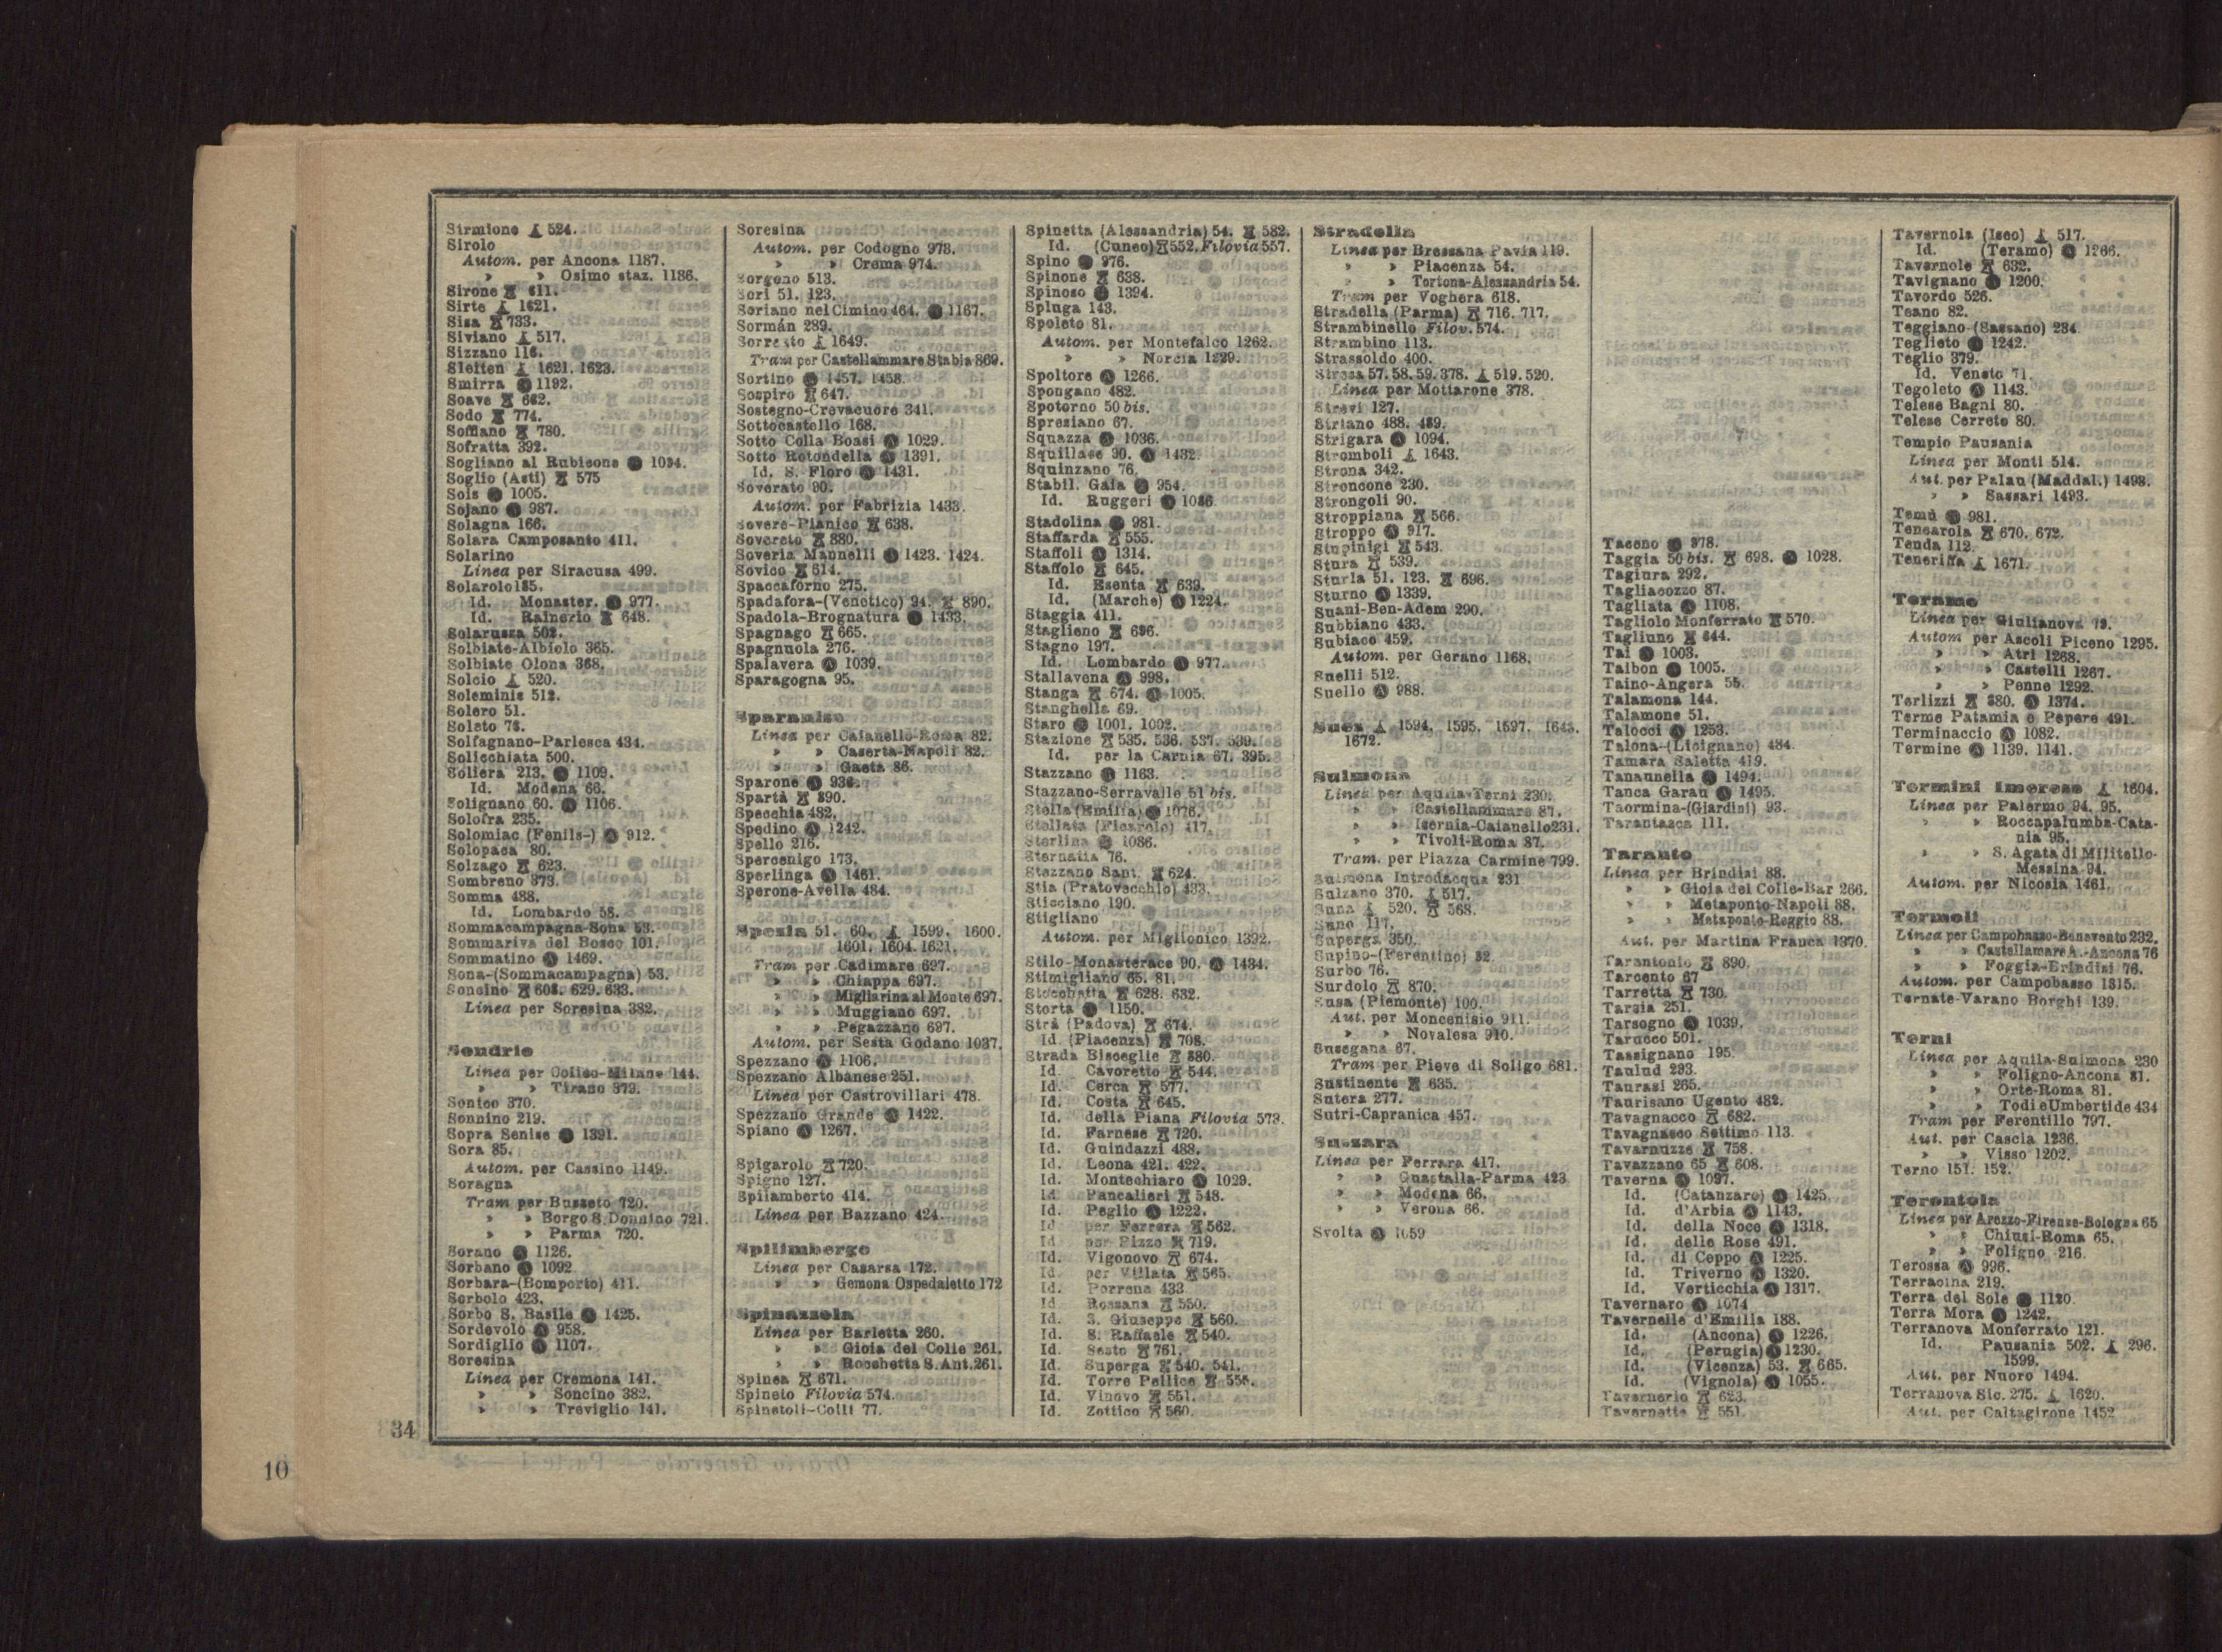 Sirmione 524.
Sirolo
Autom. per Ancona 1187.
» » Osimo staz. 1186.
Sirone 611.
Sirte 1621.
Sisa 733.
Siviano 517.
Sizzano 116.
Sleiten 1621. 1623.
Smirra 1192.
Soave 662.
Sodo 774.
Soffiano 780.
Sofratta 392.
Sogliano al Rubicone 1094.
Soglio (Asti) 575
Sois 1005.
Sojano 987.
Solagna 166.
Solara Camposanto 411.
Solarino
Linea per Siracusa 499.
Solarolo 185.
Id. Monaster. 977.
Id. Rainerio 648.
Solarussa 502.
Solbiate-Albiolo 365.
Solbiate Olona 368.
Solcio 520.
Soleminis 512.
Solero 51.
Soleto 76.
Solfagnano-Parlesca 434.
Solicchiata 500.
Soliera 213. 1109.
Id. Modena 66.
Solignano 60. 1106.
Solofra 235.
Solomiac (Fenils-) 912.
Solopaca 80.
Solzago 623.
Sombreno 373.
Somma 488.
Id. Lombardo 58.
Sommacampagna-Sona 53.
Sommariva del Bosco 101.
Sommatino 1469.
Sona-(Sommacampagna) 53.
Soncino 608. 629. 633.
Linea per Soresina 382.
Sondrio
Linea per Colico-Milano 144.
» » Tirano 379.
Sonico 370.
Sonnino 219.
Sopra Senise 1391.
Sora 85.
Autom. per Cassino 1149.
Soragna
Tram per Busseto 720.
» » Borgo S. Donnino 721.
» » Parma 720.
Sorano 1126.
Sorbano 1092
Sorbara-(Bomporto) 411.
Sorbolo 423.
Sorbo S. Basile 1425.
Sordevolo 958.
Sordiglio 1107.
Soresina
Linea per Cremona 141.
» » Soncino 382.
» » Treviglio 141.
Soresina
Autom. per Codogno 973.
» » Crema 974.
Sorgono 513.
Sori 51. 123.
Soriano nel Cimino 464. 1167.
Sormán 289.
Sorrento 1649.
Tram per Castellammare Stabia 869.
Sortino 1457. 1458.
Sospiro 647.
Sostegno-Crevacuore 341.
Sottocastello 168.
Sotto Colla Boasi 1029.
Sotto Rotondella 1391.
Id. S. Floro 1431.
Soverato 90.
Autom. per Fabrizia 1433.
Sovere-Pianico 638.
Sovereto 880.
Soveria Mannelli 1423. 1424.
Sovico 614.
Spaccaforno 275.
Spadafora-(Venetico) 94. 890.
Spadola-Brognatura 1433.
Spagnago 665.
Spagnuola 276.
Spalavera 1039.
Sparagogna 95.
Sparanise
Linea per Caianello-Roma 82.
» » Caserta-Napoli 82.
» » Gaeta 86.
Sparone 936.
Spartà 890.
Specchia 482.
Spedino 1242.
Spello 216.
Spercenigo 173.
Sperlinga 1461.
Sperone-Avella 484.
Spezia 51. 60. 1599. 1600.
1601. 1604. 1621.
Tram per Cadimare 697.
» » Chiappa 697.
» » Migliarina al Monte 697.
» » Muggiano 697.
» » Pegazzano 697.
Autom. per Sesta Godano 1037.
Spezzano 1106.
Spezzano Albanese 251.
Linea per Castrovillari 478.
Spezzano Grande 1422.
Spiano 1267.
Spigarolo 720.
Spigno 127.
Spilamberto 414.
Linea per Bazzano 424.
Spilimbergo
Linea per Casarsa 172.
» » Gemona Ospedaletto 172
Spinazzola
Linea per Barletta 260.
» » Gioia del Colle 261.
» » Rocchetta S. Ant. 261.
Spinea 671.
Spineto Filovia 574.
Spinetoli-Colli 77.
Spinetta (Alessandria) 54. 582.
Id. (Cuneo) 552. Filovia 557.
Spino 976.
Spinone 638.
Spinoso 1394.
Spluga 143.
Spoleto 81.
Autom. per Montefalco 1262.
» » Norcia 1229.
Spoltore 1266.
Spongano 482.
Spotorno 50 bis.
Spresiano 67.
Squazza 1036.
Squillace 90. 1432.
Squinzano 76.
Stabil. Gaia 954.
Id. Ruggeri 1086
Stadolina 981.
Staffarda 555.
Staffoli 1314.
Staffolo 645.
Id. Esenta 639.
Id. (Marche) 1224.
Staggia 411.
Staglieno 696.
Stagno 197.
Id. Lombardo 977.
Stallavena 998.
Stanga 674. 1005.
Stanghella 69.
Staro 1001. 1002.
Stazione 535. 536. 537. 539.
Id. per la Carnia 67. 395.
Stazzano 1163.
Stazzano-Serravalle 51 bis.
Stella (Emilia) 1076.
Stellata (Ficarolo) 417.
Sterlina 1086.
Sternatia 76.
Stezzano Sant. 624.
Stia (Pratovecchio) 433.
Sticciano 190.
Stigliano
Autom. per Miglionico 1392.
Stilo-Monasterace 90. 1434.
Stimigliano 65. 81.
Stocchetta 628. 632.
Storta 1150.
Strà (Padova) 674.
Id. (Piacenza) 708.
Strada Bisceglie 880.
Id. Cavoretto 544.
Id. Cerca 577.
Id. Costa 645.
Id. della Piana Filovia 573.
Id. Farnese 720.
Id. Guindazzi 488.
Id. Leona 421. 422.
Id. Montechiaro 1029.
Id. Pancalieri 548.
Id. Peglio 1222.
Id. per Ferrera 562.
Id. per Pizzo 719.
Id. Vigonovo 674.
Id. per Villata 565.
Id. Porrena 433
Id. Rossana 550.
Id. S. Giuseppe 560.
Id. S. Raffaele 540.
Id. Sesto 761.
Id. Superga 540. 541.
Id. Torre Pellice 556.
Id. Vinovo 551.
Id. Zottico 560.
Stradella
Linea per Bressana Pavia 119.
» » Piacenza 54.
» » Tortona-Alessandria 54.
Tram per Voghera 618.
Stradella (Parma) 716. 717.
Strambinello Filov. 574.
Strambino 113.
Strassoldo 400.
Stresa 57. 58. 59. 378. 519. 520.
Linea per Mottarone 378.
Strevi 127.
Striano 488. 489.
Strigara 1094.
Stromboli 1643.
Strona 342.
Stroncone 230.
Strongoli 90.
Stroppiana 566.
Stroppo 917.
Stupinigi 543.
Stura 539.
Sturla 51. 123. 696.
Sturno 1339.
Suani-Ben-Adem 290.
Subbiano 433.
Subiaco 459.
Autom. per Gerano 1168.
Suelli 512.
Suello 988.
Suez 1594. 1595. 1597. 1643.
1672.
Sulmona
Linea per Aquila-Terni 230.
» » Castellammare 87.
» » Isernia-Caianello 231.
» » Tivoli-Roma 87.
Tram. per Piazza Carmine 799.
Sulmona Introdacqua 231
Sulzano 370. 517.
Suna 520. 568.
Suno 117.
Superga 350.
Supino-(Ferentino) 82.
Surbo 76.
Surdolo 870.
Susa (Piemonte) 100.
Aut. per Moncenisio 911.
» » Novalesa 910.
Susegana 67.
Tram per Pieve di Soligo 681.
Sustinente 635.
Sutera 277.
Sutri-Capranica 457.
Suzzara
Linea per Ferrara 417.
» » Guastalla-Parma 423
» » Modena 66.
» » Verona 66.
Svolta 1059
Taceno 978.
Taggia 50 bis. 698. 1028.
Tagiura 292.
Tagliacozzo 87.
Tagliata 1108.
Tagliolo Monferrato 570.
Tagliuno 644.
Tai 1003.
Taibon 1005.
Taino-Angera 55.
Talamona 144.
Talamone 51.
Talocci 1253.
Talona-(Licignano) 484.
Tamara Saletta 419.
Tanaunella 1494.
Tanca Garau 1495.
Taormina-(Giardini) 93.
Tarantasca 111.
Taranto
Linea per Brindisi 88.
» » Gioia del Colle-Bar 266.
» » Metaponto-Napoli 88.
» » Metaponto-Reggio 88.
Aut. per Martina Franca 1370.
Tarantonio 890.
Tarcento 67
Tarretta 730.
Tarsia 251.
Tarsogno 1039.
Tarucco 501.
Tassignano 195.
Taulud 293.
Taurasi 265.
Taurisano Ugento 482.
Tavagnacco 682.
Tavagnasco Settimo 113.
Tavarnuzze 758.
Tavazzano 65 608.
Taverna 1097.
Id. (Catanzaro) 1425.
Id. d'Arbia 1143.
Id. della Noce 1318.
Id. delle Rose 491.
Id. di Ceppo 1225.
Id. Triverno 1320.
Id. Verticchia 1317.
Tavernaro 1074
Tavernelle d'Emilia 188.
Id. (Ancona) 1226.
Id. (Perugia) 1230.
Id. (Vicenza) 53. 665.
Id. (Vignola) 1055.
Tavernerio 623.
Tavernette 551.
Tavernola (Iseo) 517.
Id. (Teramo) 1266.
Tavernole 632.
Tavignano 1200.
Tavordo 526.
Teano 82.
Teggiano-(Sassano) 284
Teglieto 1242.
Teglio 379.
Id. Veneto 71.
Tegoleto 1143.
Telese Bagni 80.
Telese Cerreto 80.
Tempio Pausania
Linea per Monti 514.
Aut. per Palau (Maddal.) 1493.
» » Sassari 1493.
Temù 981.
Tencarola 670. 672.
Tenda 112.
Teneriffa 1671.
Teramo
Linea per Giulianova 79.
Autom per Ascoli Piceno 1295.
» » Atri 1268.
» » Castelli 1267.
» » Penne 1292.
Terlizzi 880. 1374.
Terme Patamia e Pepere 491.
Terminaccio 1082.
Termine 1139. 1141.
Termini Imerese 1604.
Linea per Palermo 94. 95.
» » Roccapalumba-Cata-
nia 95.
» » S. Agata di Militello-
Messina 94.
Autom. per Nicosia 1461.
Termoli
Linea per Campobasso-Benevento 232.
» » Castellamare A.-Ancona 76
» » Foggia-Brindisi 76.
Autom. per Campobasso 1315.
Ternate-Varano Borghi 139.
Terni
Linea per Aquila-Sulmona 230
» » Foligno-Ancona 81.
» » Orte-Roma 81.
» » Todi e Umbertide 434
Tram per Ferentillo 797.
Aut. per Cascia 1236.
» » Visso 1202.
Terno 151. 152.
Terontola
Linea per Arezzo-Firenze-Bologna 65
» » Chiusi-Roma 65.
» » Foligno 216.
Terossa 996.
Terracina 219.
Terra del Sole 1120.
Terra Mora 1242.
Terranova Monferrato 121.
Id. Pausania 502. 296.
1599.
Aut. per Nuoro 1494.
Terranova Sic. 275. 1620.
Aut. per Caltagirone 1452
34
10